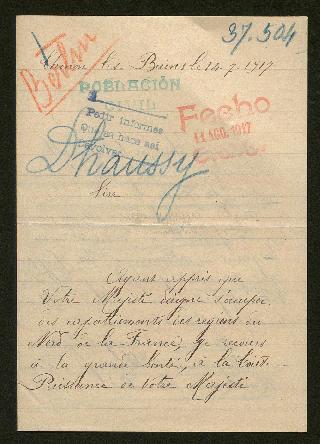 37.504
Berlin
les Bains le 14-7-1917
POBLACIÓN
CIVIL
Pedir informes
Que se hace así
Fecho
11 AGO. 1917
Dhaussy
Sire
Ayant appris que
Votre Majesté daigne s'occuper
des rapatriements des régions du
Nord de la France, je recours
à la grande bonté, à la Toute
Puissance de Votre Majesté